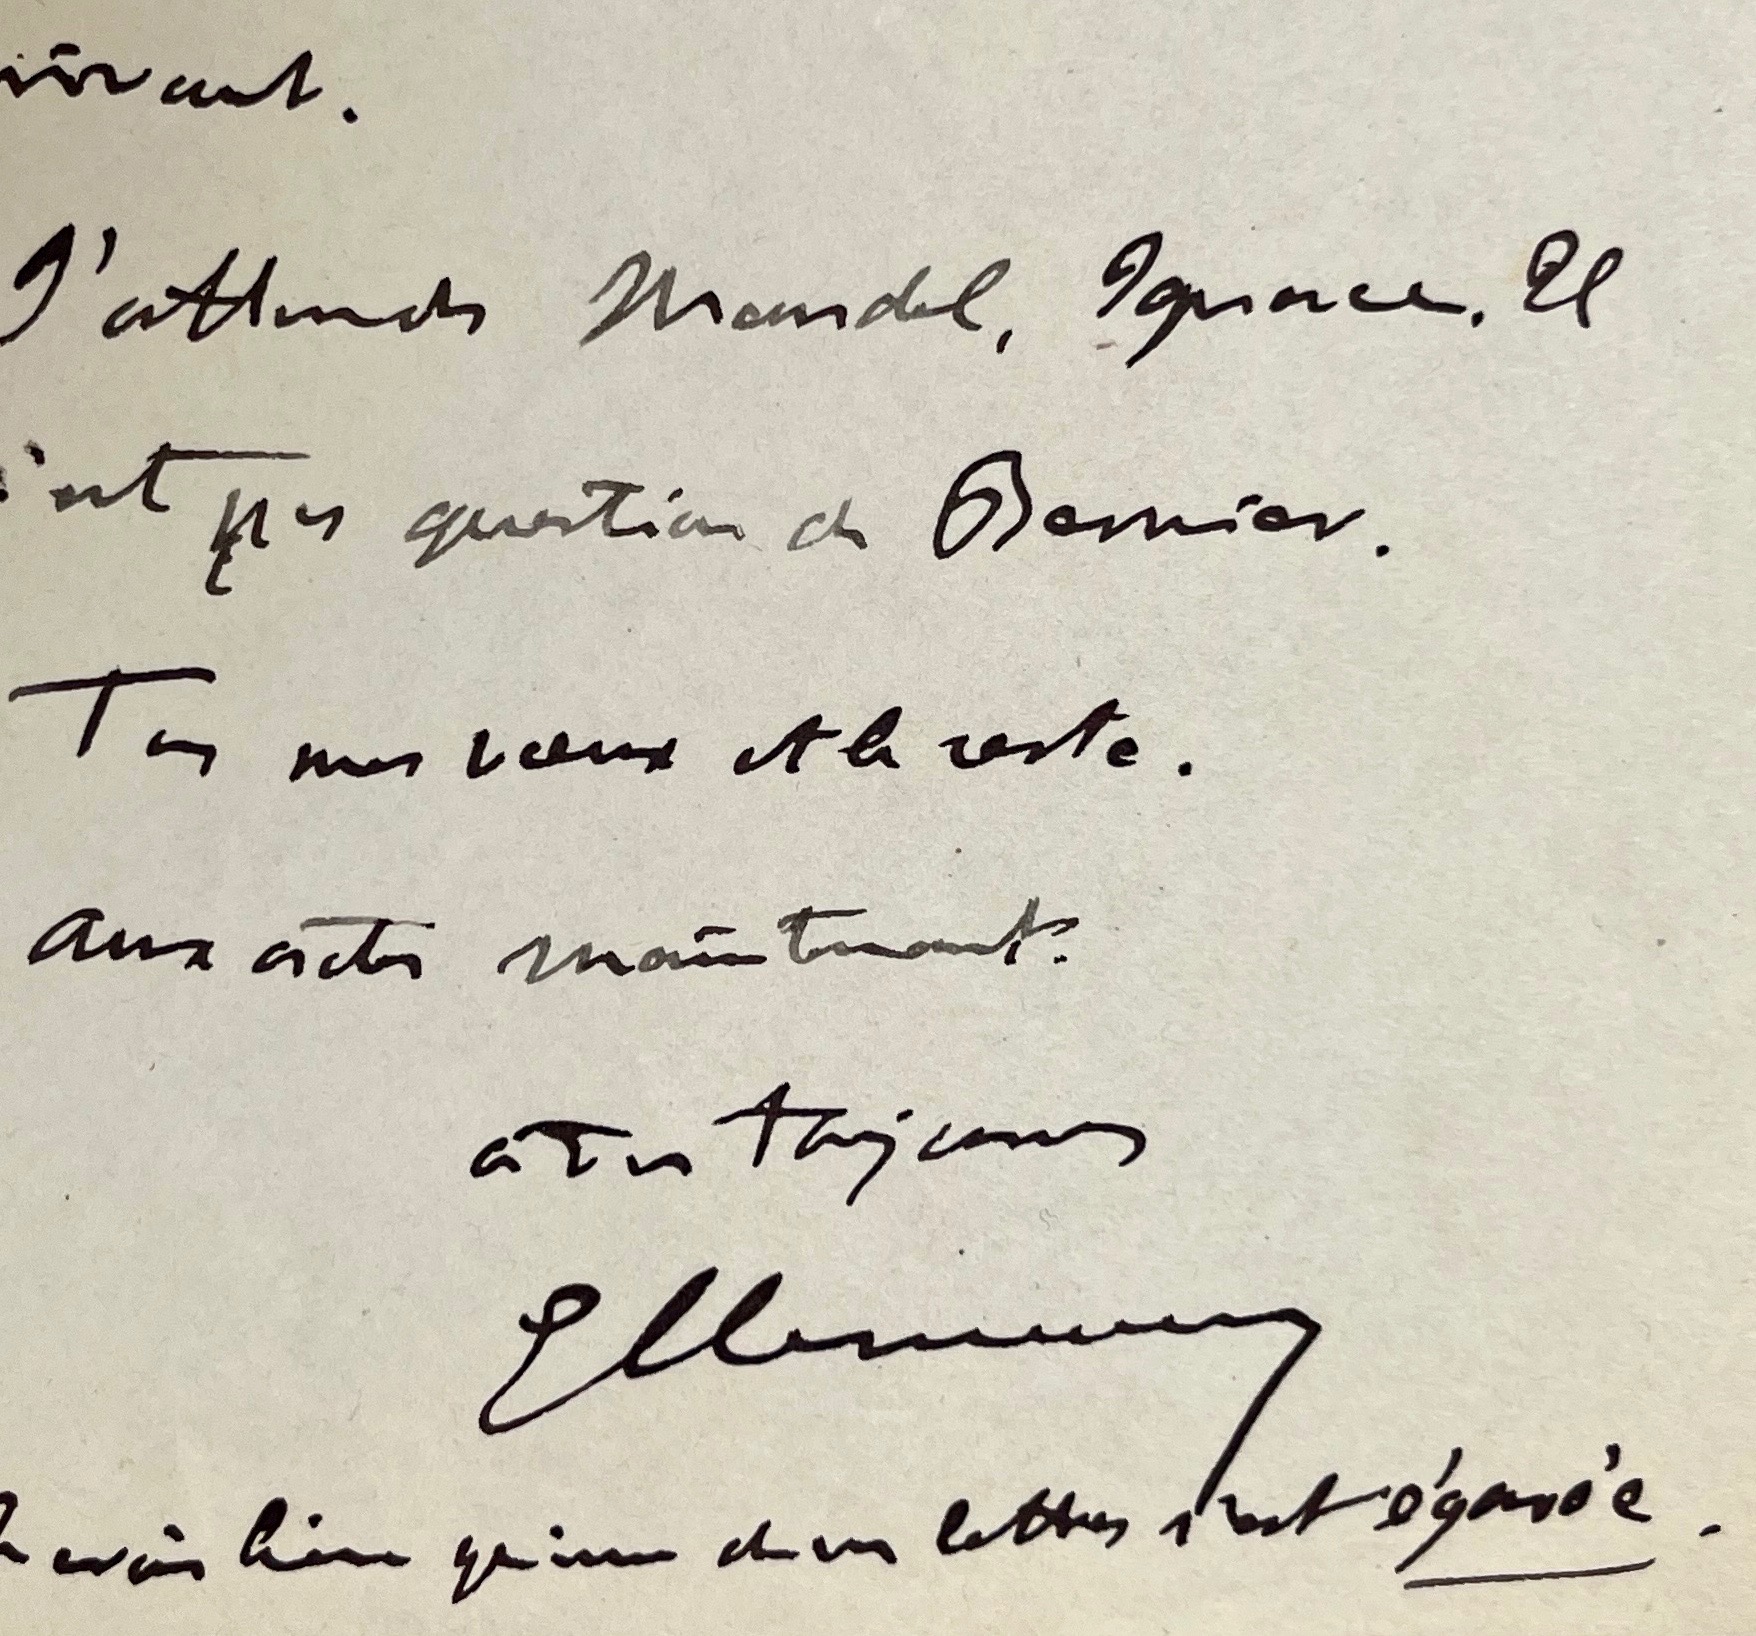 vivant.
J'attends Mandel, Ignace. Il
n'est pas question de Bernier.
Tous mes vœux et le reste.
Aux actes maintenant.
à vous toujours
GClemenceau
Je vois bien qu'une de vos lettres s'est égarée.